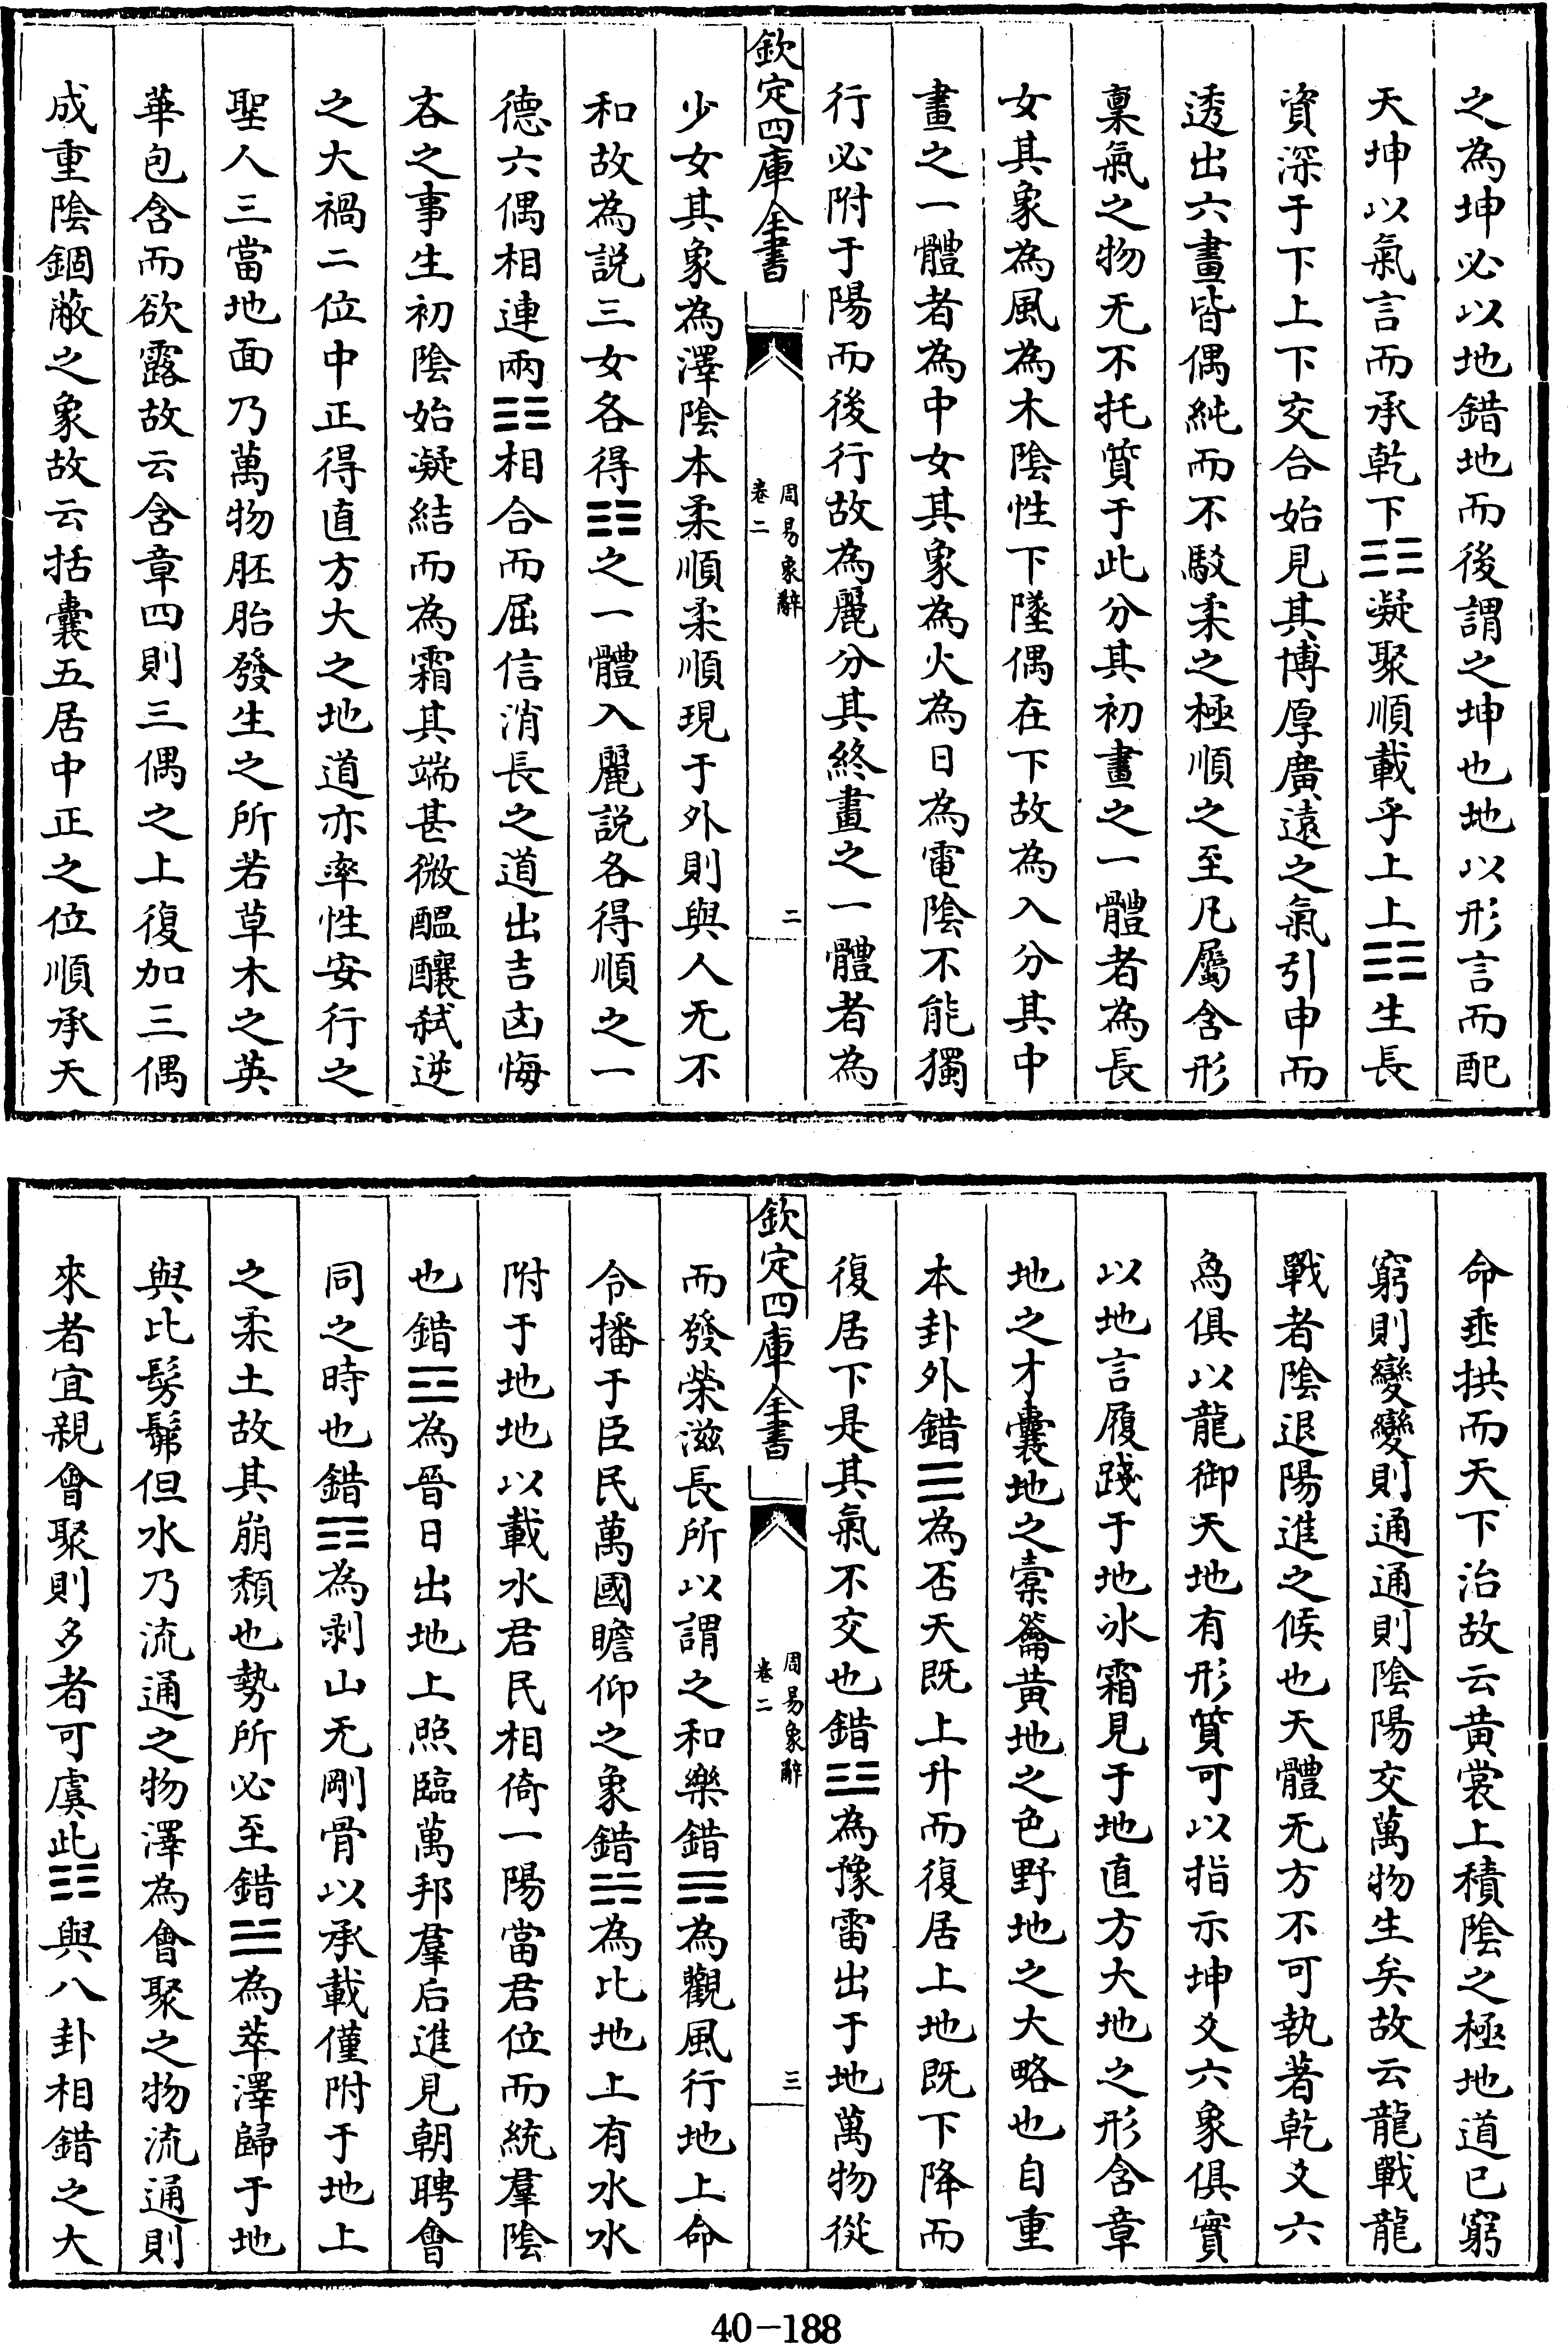 之為坤必以地錯地而後謂之坤也地以形言而配
天坤以氣言而承乾下☷凝聚順載乎上上☷生長
資深于下上下交合始見其博厚廣遠之氣引申而
透出六畫皆偶純而不駁柔之極順之至凡屬含形
稟氣之物无不托質于此分其初畫之一體者為長
女其象為風為木陰性下墜偶在下故為入分其中
畫之一體者為中女其象為火為日為電陰不能獨
行必附于陽而後行故為麗分其終畫之一體者為
欽定四庫全書
周易象辭
卷二
二
少女其象為澤陰本柔順柔順現于外則與人无不
和故為説三女各得☷之一體入麗説各得順之一
德六偶相連兩☷相合而屈信消長之道出吉凶悔
吝之事生初陰始凝結而為霜其端甚微醖釀弑逆
之大禍二位中正得直方大之地道亦率性安行之
聖人三當地面乃萬物胚胎發生之所若草木之英
華包含而欲露故云含章四則三偶之上復加三偶
成重陰錮蔽之象故云括囊五居中正之位順承天
命垂拱而天下治故云黄裳上積陰之極地道已窮
窮則變變則通通則陰陽交萬物生矣故云龍戰龍
戰者陰退陽進之候也天體无方不可執著乾爻六
爲俱以龍御天地有形質可以指示坤爻六象俱實
以地言履踐于地氷霜見于地直方大地之形含章
地之才囊地之橐籥黄地之色野地之大略也自重
本卦外錯☰為否天既上升而復居上地既下降而
復居下是其氣不交也錯☳為豫雷出于地萬物從
欽定四庫全書
周易象辭
卷二
三
而發榮滋長所以謂之和樂錯☴為觀風行地上命
令播于臣民萬國瞻仰之象錯☵為比地上有水水
附于地地以載水君民相倚一陽當君位而統羣陰
也錯☲為晉日出地上照臨萬邦羣后進見朝聘會
同之時也錯☶為剥山无剛骨以承載僅附于地上
之柔土故其崩頽也勢所必至錯☱為萃澤歸于地
與比髣髴但水乃流通之物澤為會聚之物流通則
來者宜親會聚則多者可虞此☷與八卦相錯之大
40-188